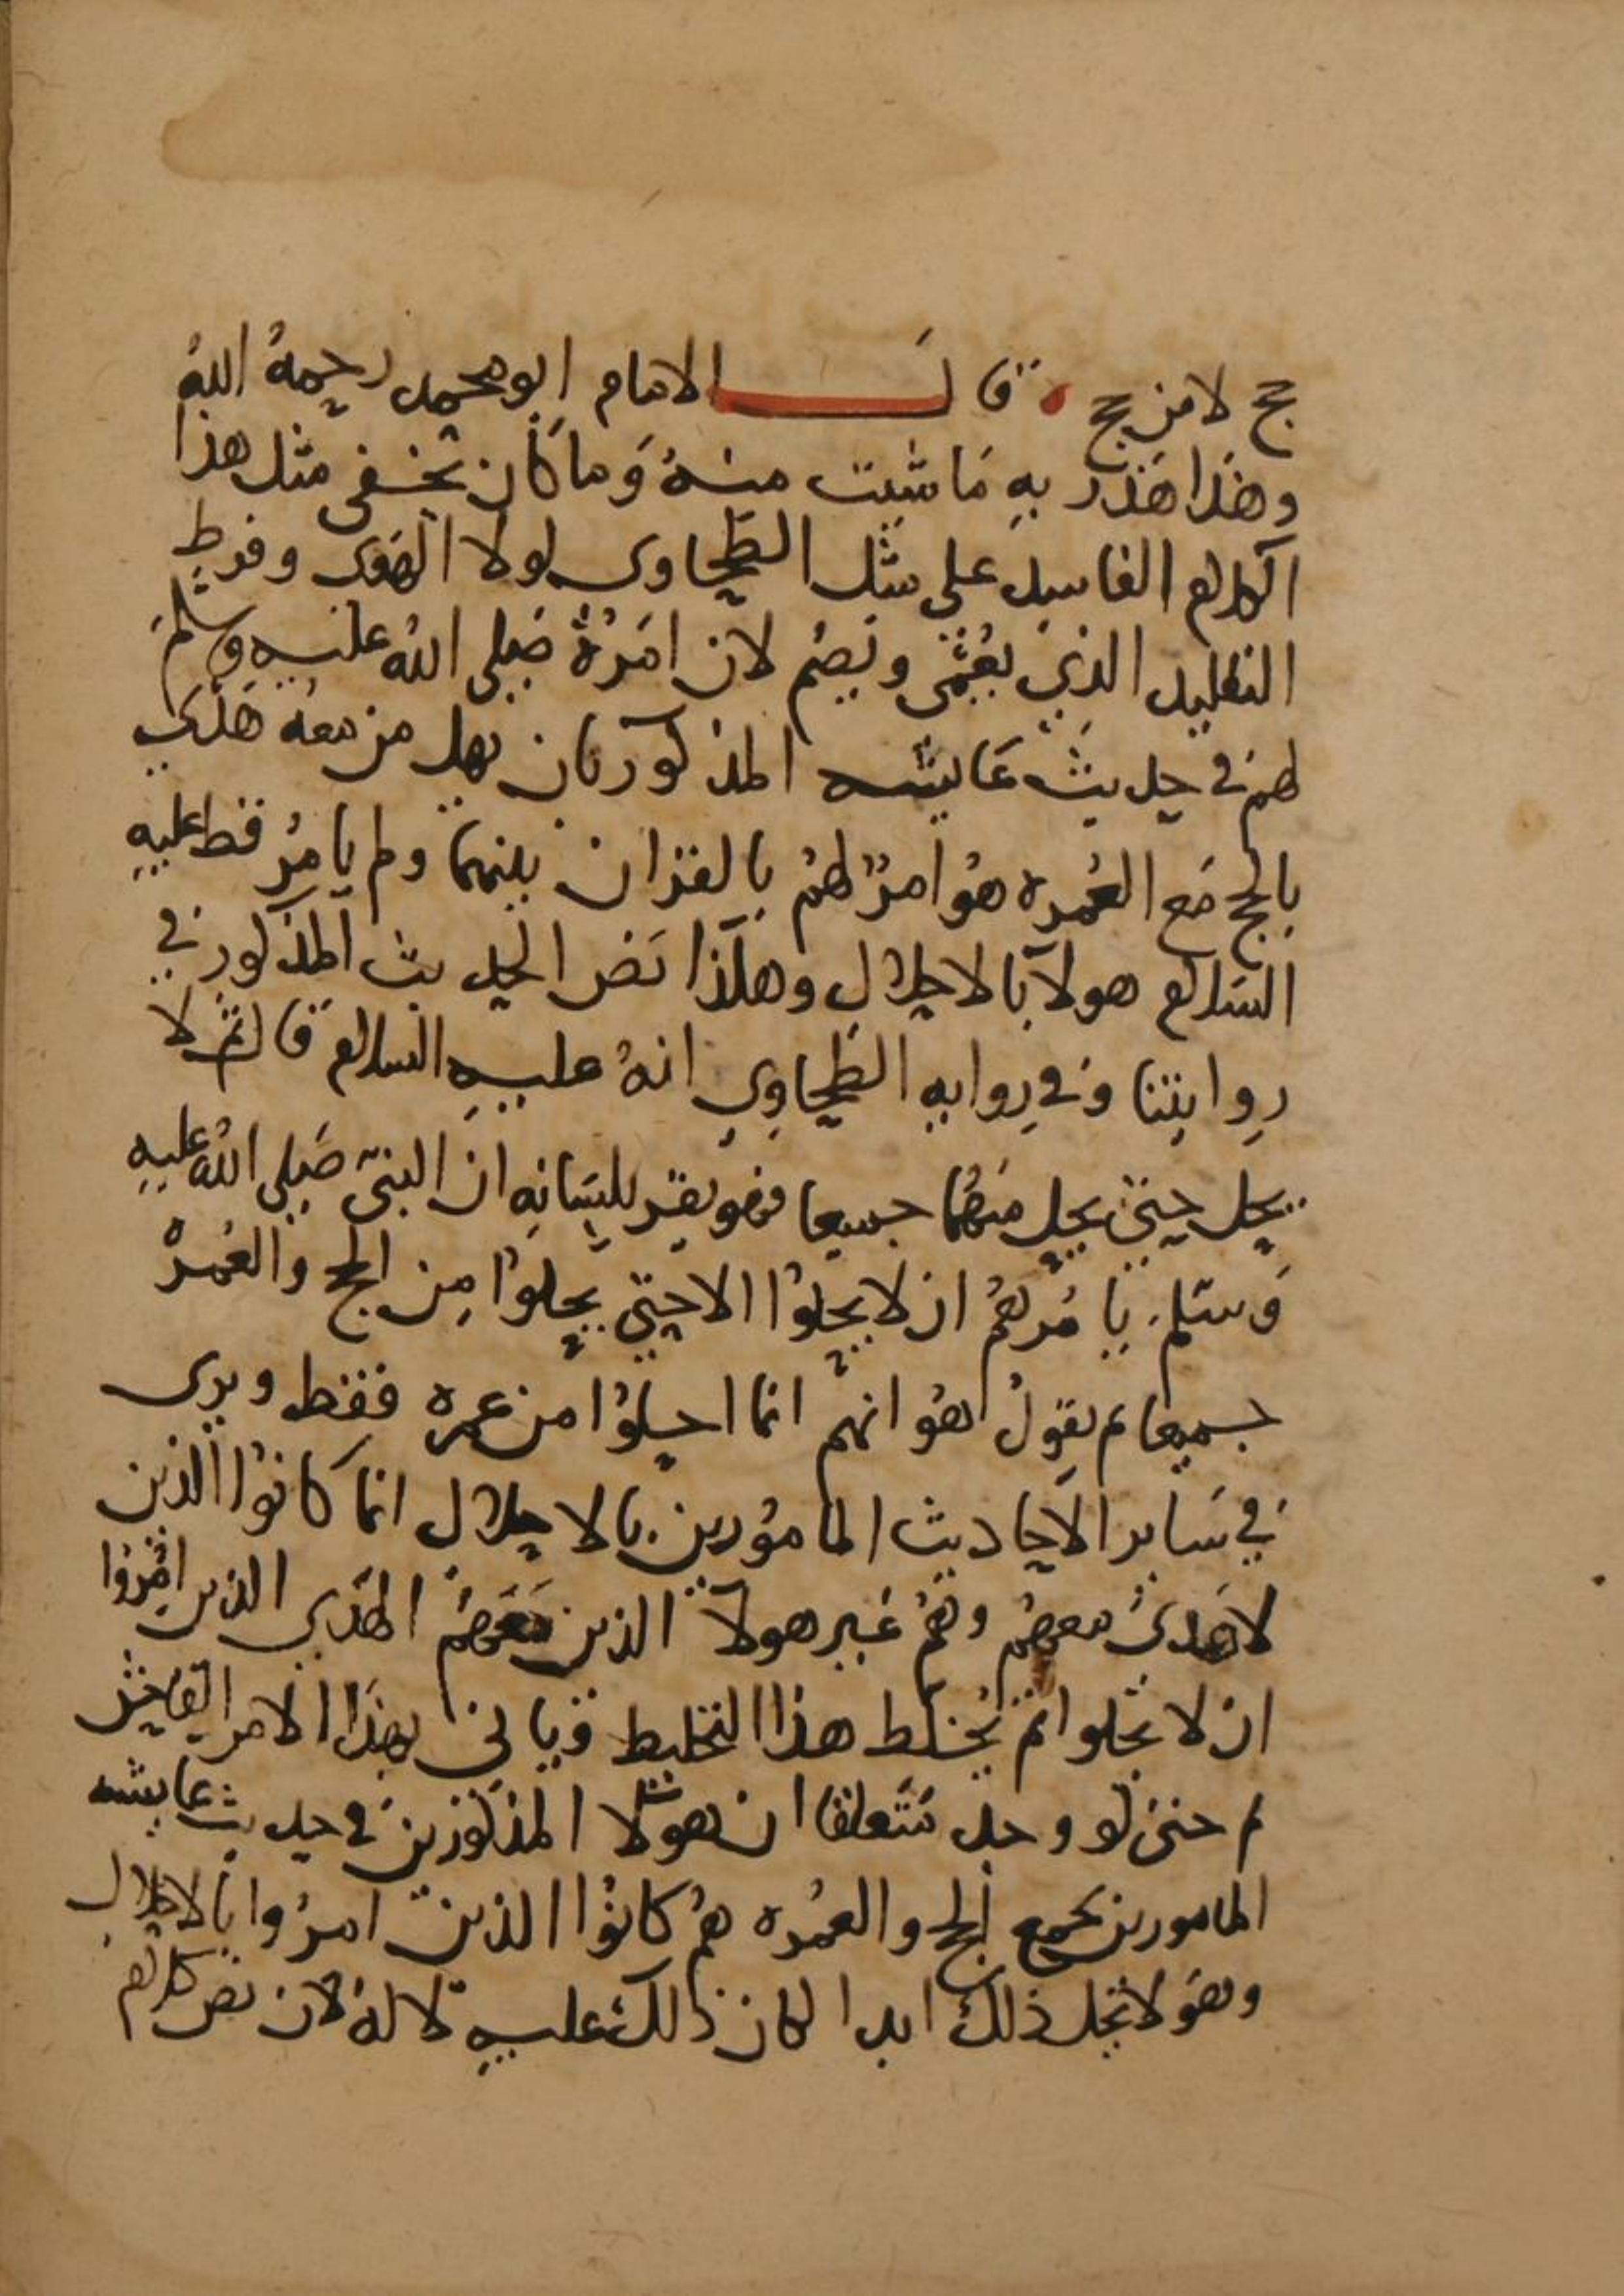 حج لا من حج ۰ قال الامام ابو محمد رحمهُ اللهُ
وهَذا هَذَر بهِ مَا شيت منهُ وَما كان يخفى مثل هذا
الكلام الفاسد على مثل الطحاوى لولا الهَوى وفرط
التقليد الذي يعُمى ويصُم لان امَرهُ صَلى اللهُ عليهِ وسلم
لهم في حديث عَايشه المذكور بان يهل من معهُ هَدي
بالحج مَع العُمره هوُ امرٌ لهمُ بالقران بينهما ولم يامرُ قط عليهِ
السَلام هولا بالاحلال وهكذا نَص الحديث المذكور في
رِوايتنا وَفي رِوايهِ الطحاوِي انهُ عليهِ السلام قال ثم لا
يحل حتى يحل منهُما جميعا فهو يقر بلسَانِه ان النبيّ صَلى اللهُ عليهِ
وَسَلم يامُرهُم ان لا يحلوُا الا حتى يحلوُا مِن الحج وَالعُمرهْ
جميعا ثم يقول هوُ انهم انما احلوُا من عمره فقط ويرى
في سَاير الاحاديث المامورين بالاحلال انما كانوُا الذين
لا هَدىُ معهمُ وهُم غير هولآ الذين مَعَهمُ الهَدي الذين امُروُا
ان لا يحلوا ثم يُخلط هذا التخليط وَياتي بهَذا الامر الفاحش
ثم حتى لو وجد مُتَعلقا ان هولا المذكورين في حديث عايشه
المامورين بجمع الحج والعمُره همُ كانوُا الذين امرُوا بالاحلال
وهوَ لا يجد ذلك ابدا لكان ذلك عليهِ لا لهُ لان نص كلامهم